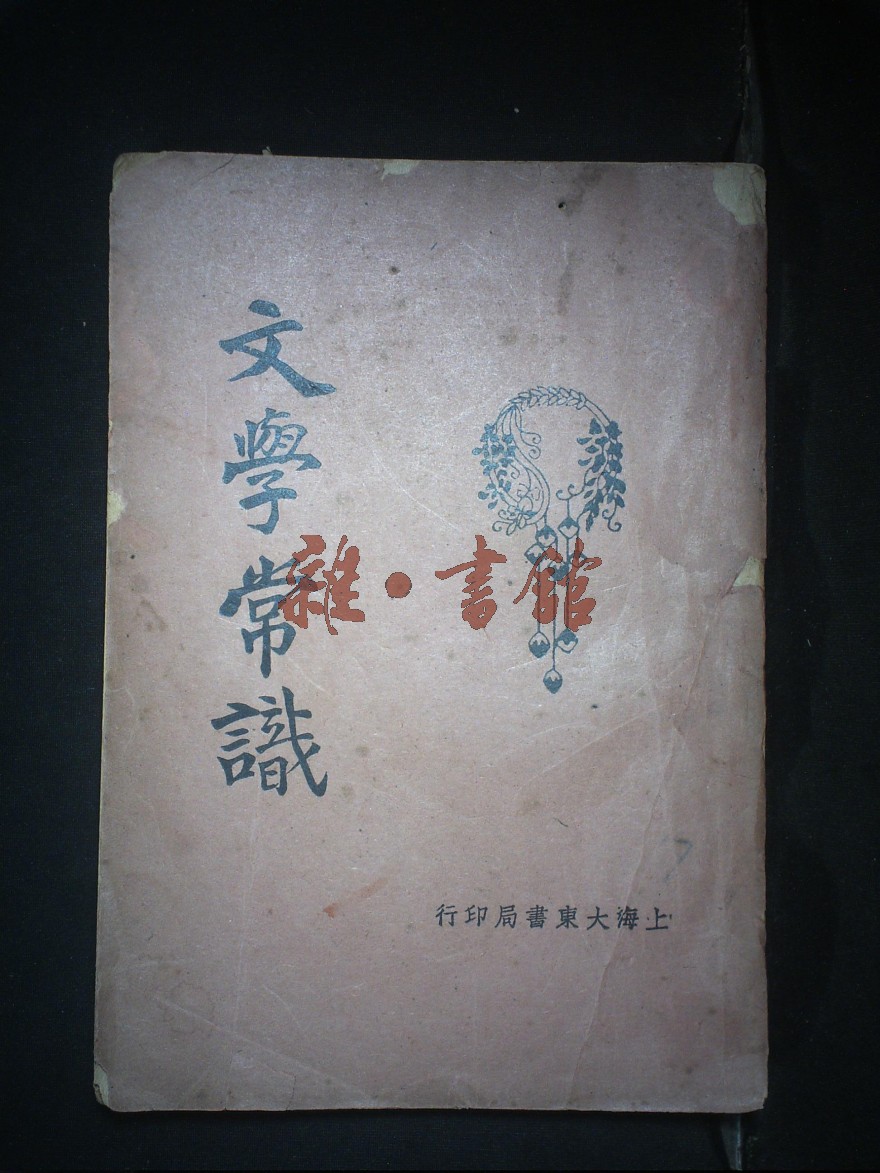 文學常識
雜·書館
上海大東書局印行